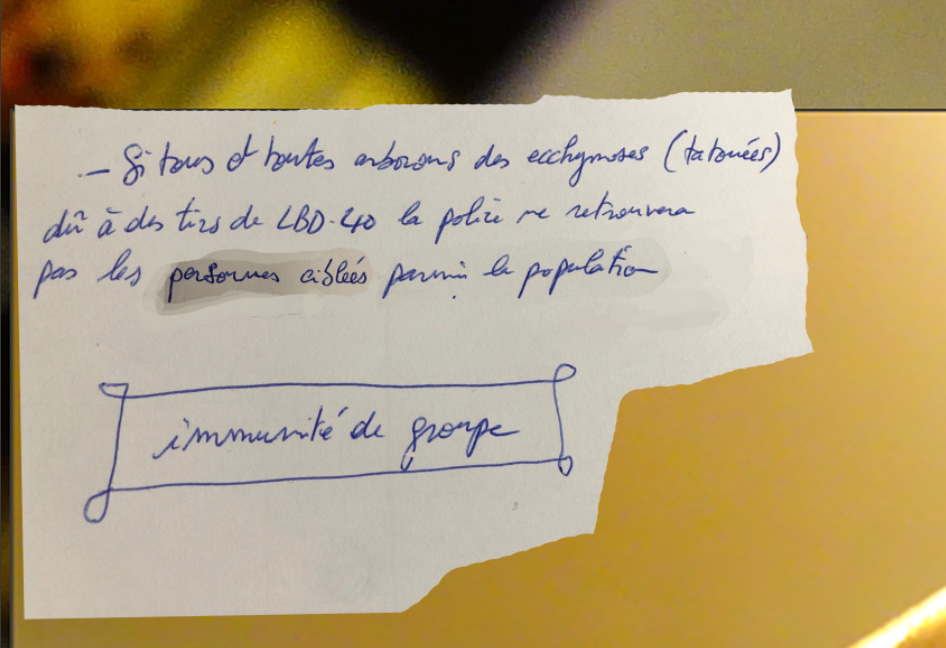 - Si tous et toutes arborons des ecchymoses (tatouées)
dû à des tirs de LBD-40 la police ne retrouvera
pas les personnes ciblées parmi la population
immunité de groupe